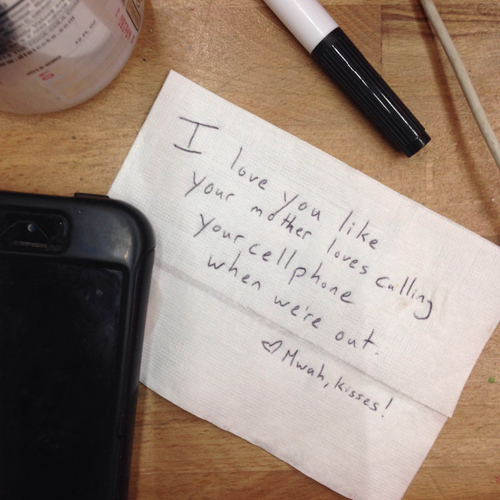 I love you like
your mother loves calling
your cellphone
when we're out.
♡ Mwah, kisses!